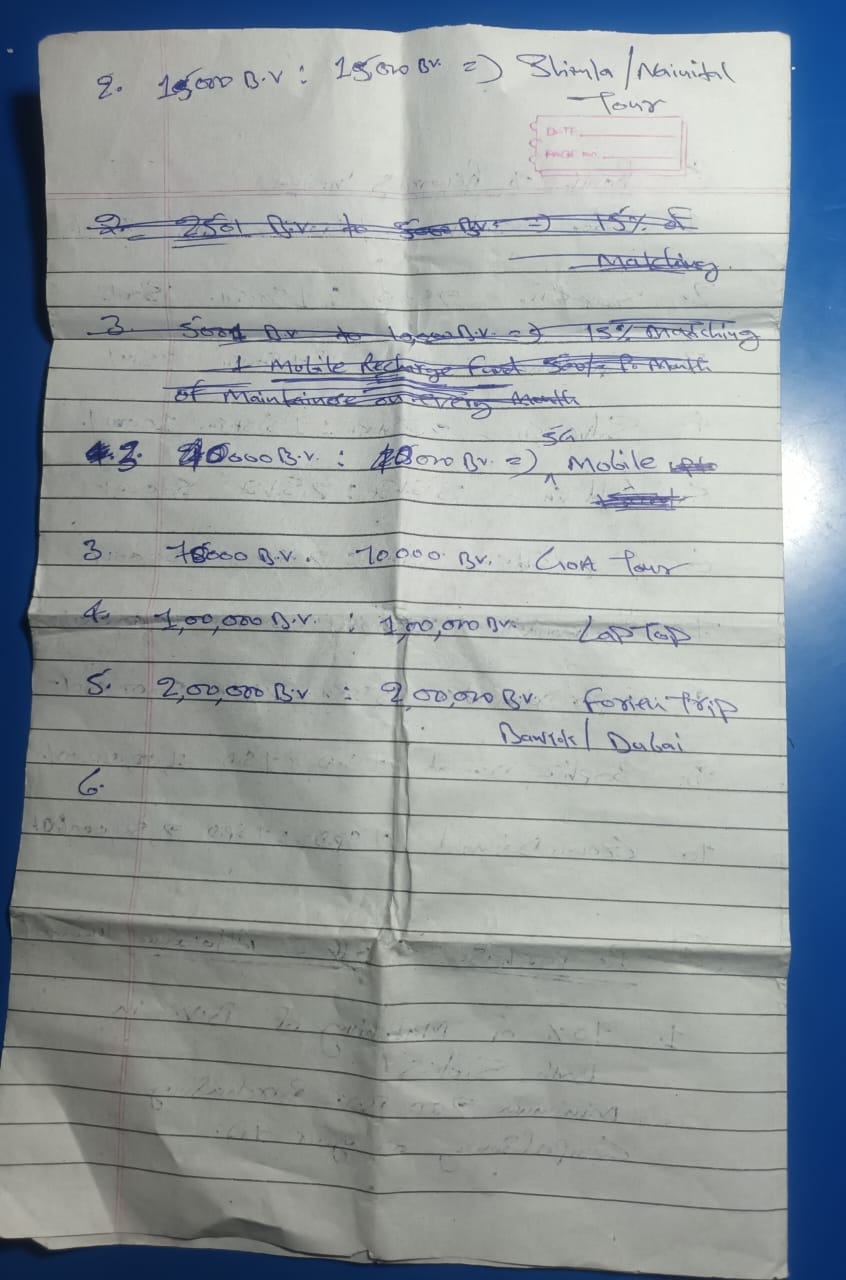 2. 15000 B.V : 15000 BV. => Shimla / Nainital
Tour
DATE
PAGE NO.
2. 2501 B.V. to 5000 BV. => 15% of
Matching.
3. 5001 B.V to 10,000 B.V. => 15% Matching
1 Mobile Recharge Fund 500/- P. Month
of Maintainere on every Month
5G
3. 0000 B.V. : 000 BV. => Mobile
3. 000 B.V. 70.000 BV. GOA Tour
4. 1,00,000 B.V. : 1,00,000 BV. LapTop
5. 2,00,000 B.V : 2,00,000 BV. Forien Trip
/ Dubai
6.